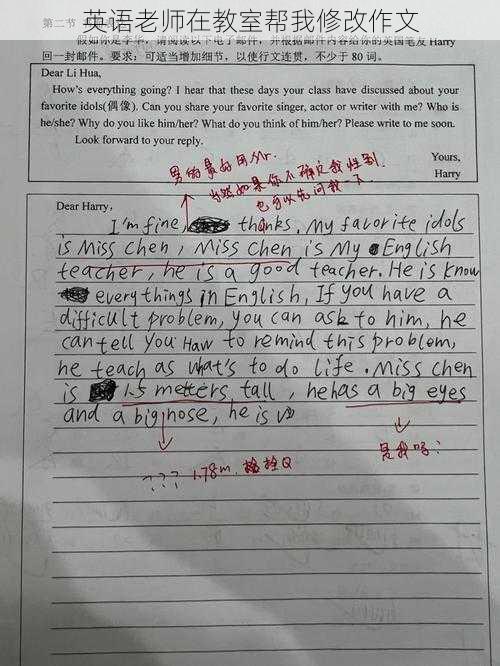 英语老师在教室帮我修改作文
第二节
假如你是李华，请阅读以下电子邮件，并根据邮件内容给你的英国笔友 Harry
回一封邮件。要求：可适当增加细节，以使行文连贯，不少于 80 词。
Dear Li Hua,
How's everything going? I hear that these days your class have discussed about your
favorite idols(偶像). Can you share your favorite singer, actor or writer with me? Who is
he/she? Why do you like him/her? What do you think of him/her? Please write to me soon.
Look forward to your reply.
Yours,
Harry
男的最好用Mr.
当然如果你不确定我性别
也可以先问我一下
Dear Harry,
I'm fine, thanks. My faborite idols
is Miss chen, Miss chen is My English
teacher, he is a good teacher. He is know
everythings in English, If you have a
difficult problem, you can ask to him, he
can tell you Haw to remind this problem,
he teach as what's to do life. Miss chen
is 1.5 metters tall, he has a big eyes
and a big nose, he is
??? 1.78m. 栓Q
是我吗?